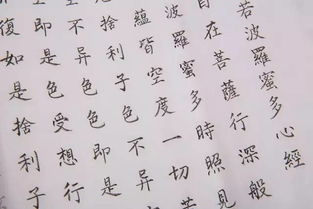 若波羅蜜多心經
自在菩薩行深般
波羅蜜多時照見
蘊皆空度一切苦
捨利子色不异
不异色色即是
即是色受想行
復如是捨利子